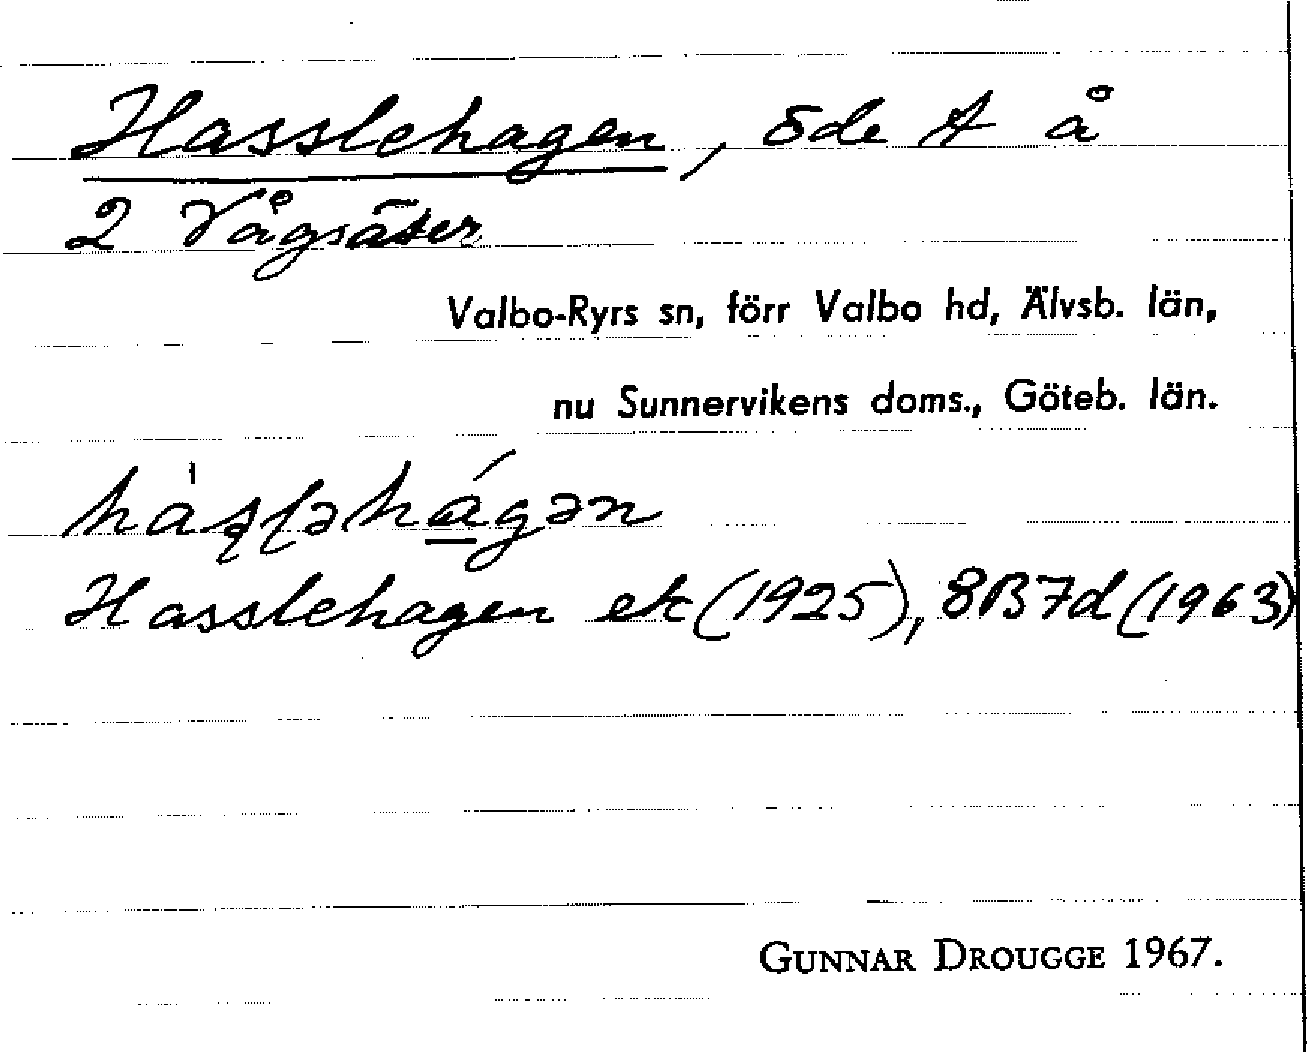 Hasslehagen, öde A å
2 Vågsäter
Valbo-Ryrs sn, förr Valbo hd, Älvsb. län,
nu Sunnervikens doms., Göteb. län.
Hasslehagen ek (1925), 8B7d (1963)
GUNNAR DROUGGE 1967.